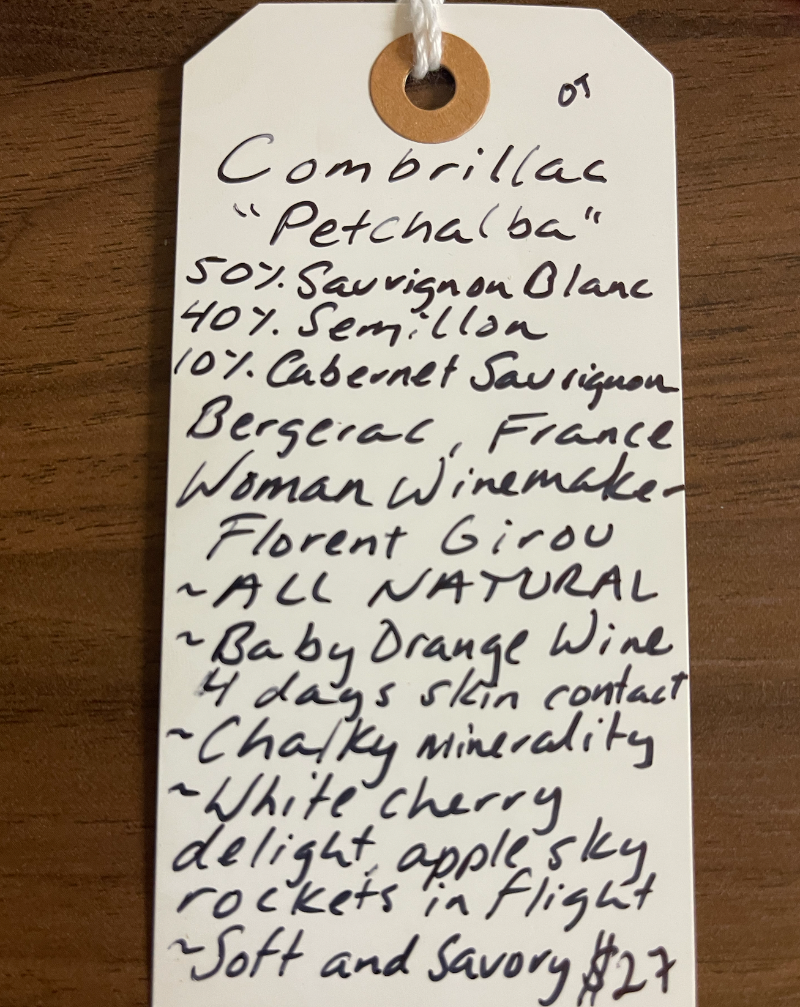 OT
Combrillac
"Petchalba"
50% Sauvignon Blanc
40% Semillon
10% Cabernet Sauvignon
Bergerac, France
Woman Winemaker
Florent Girou
~ALL NATURAL
~Baby Orange Wine
4 days skin contact
~Chalky minerality
~White cherry
delight, apple sky
rockets in flight
~Soft and Savory $27